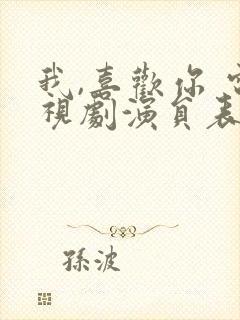 我,喜歡你
視劇演員表
孫波